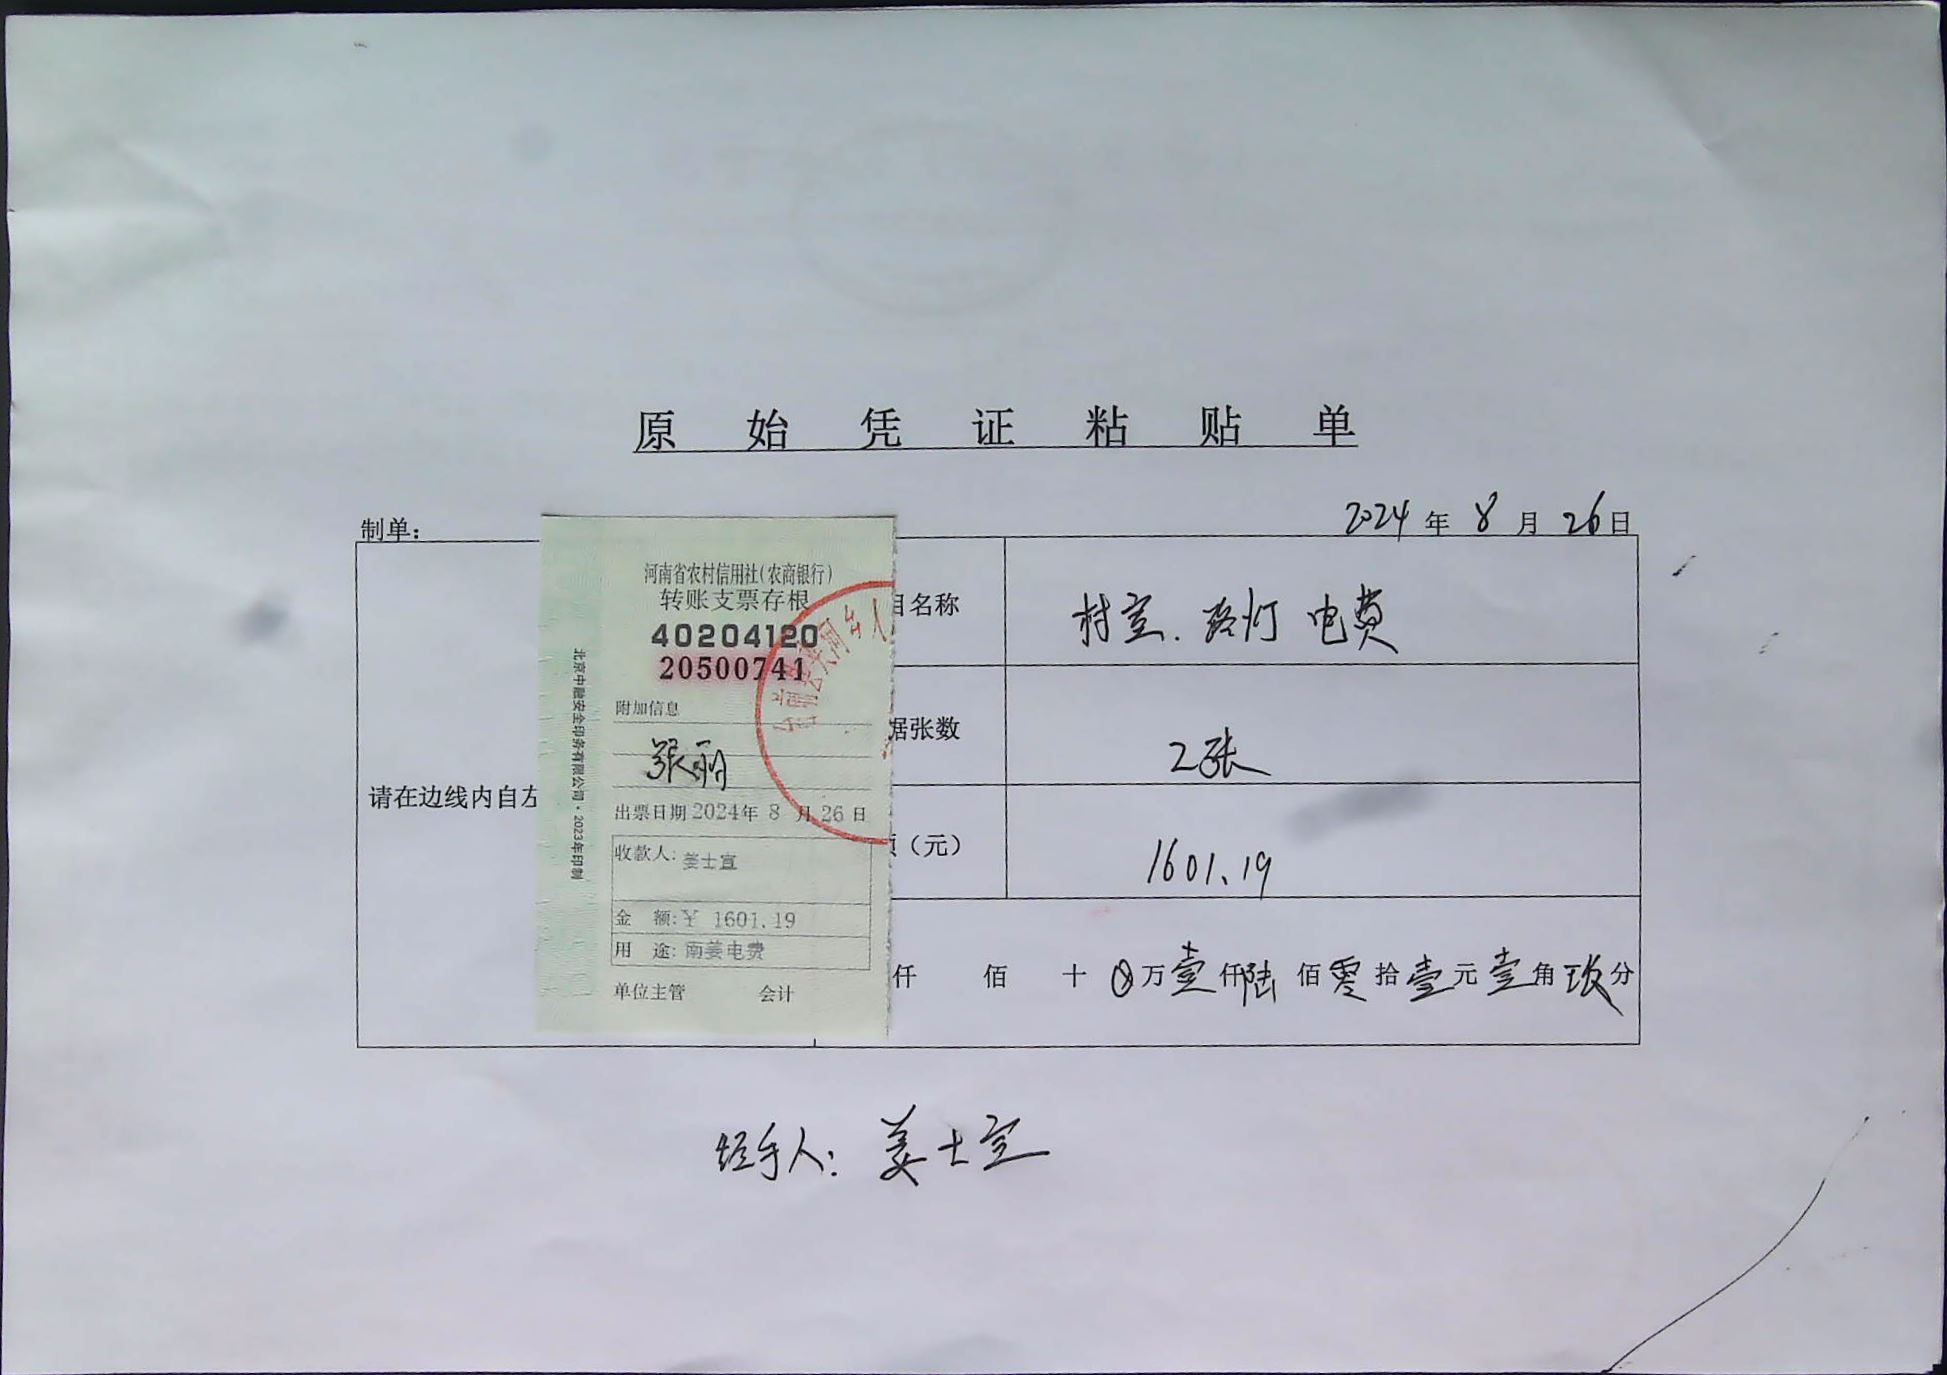 原始凭证粘贴单
制单：
2024年8月26日
请在边线内自左
河南省农村信用社(农商银行)
转账支票存根
40204120
20500741
附加信息
张丽
出票日期2024年8月26日
收款人：姜士宣
金 额：¥ 1601.19
用 途：南姜电费
单位主管 会计
北京中融安全印务有限公司·2023年印制
目名称 村室、路灯 电费
据张数 2张
（元） 1601.19
仟 佰 十 万壹仟陆佰零拾壹元壹角玖分
经手人：姜士宣